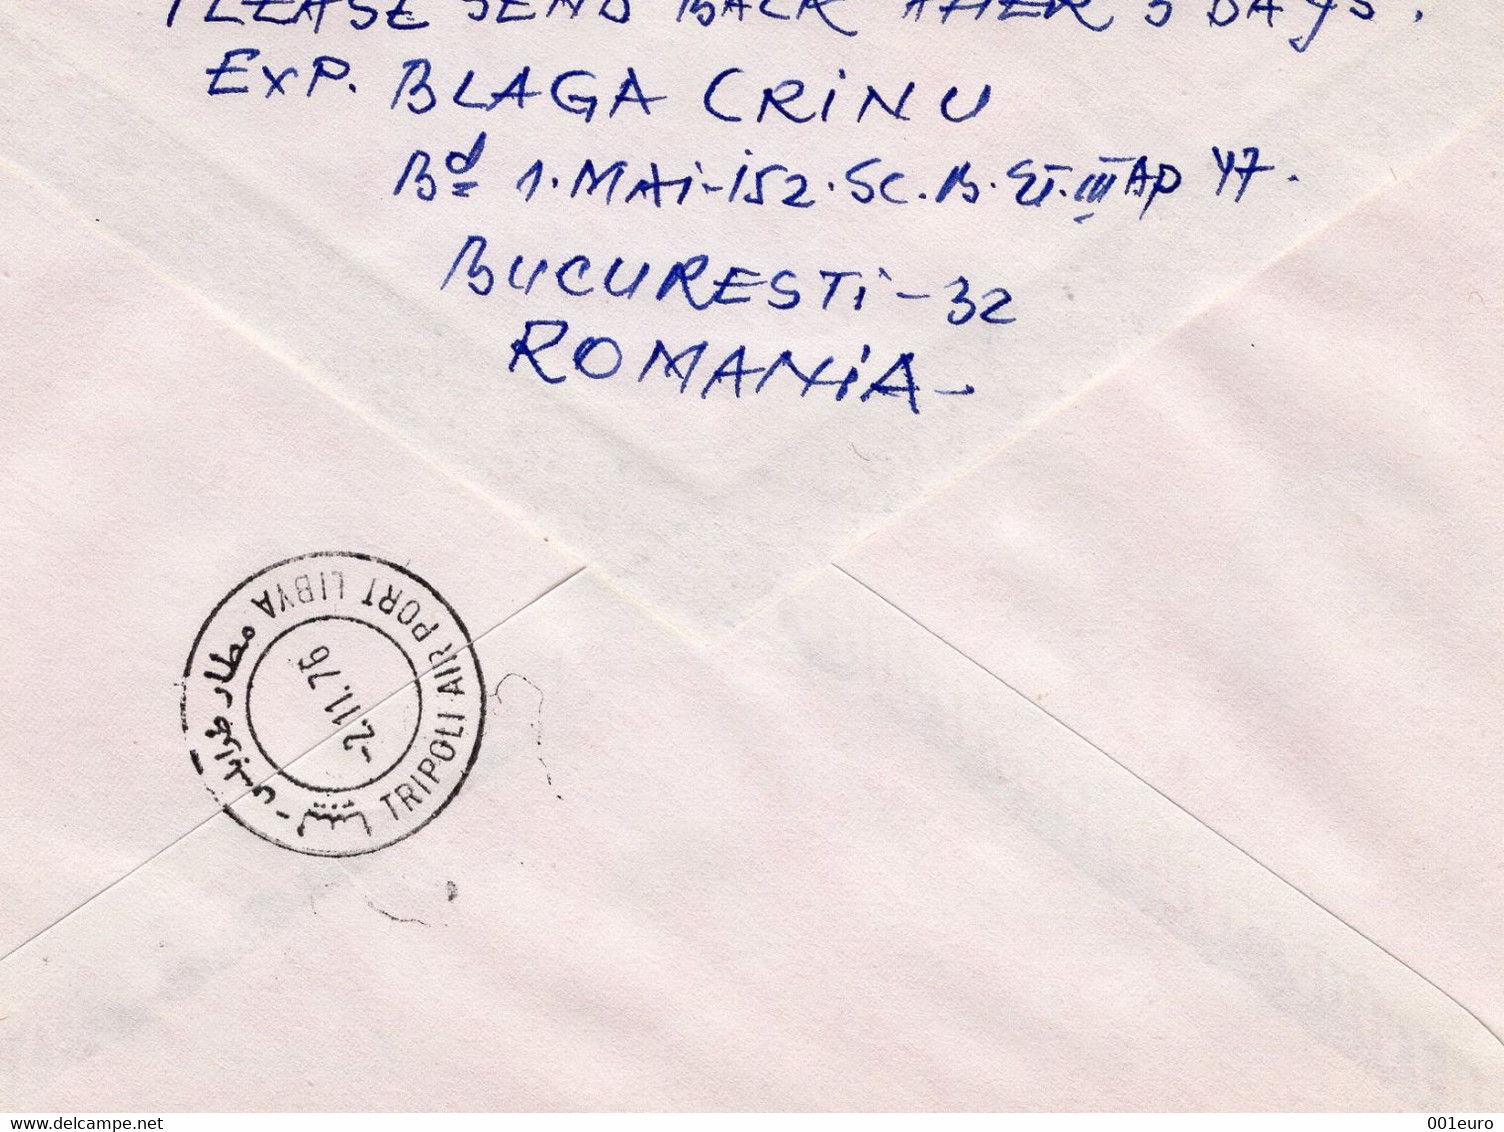 PLEASE SEND BACK AFTER 5 DAYS.
EXP. BLAGA CRINU
Bd 1. MAI-152. SC. B. ET. III AP 47.
BUCURESTI-32
ROMANIA-
TRIPOLI AIRPORT LIBYA
مطار طرابلس
-2.11.76
www.delcampe.net
001euro